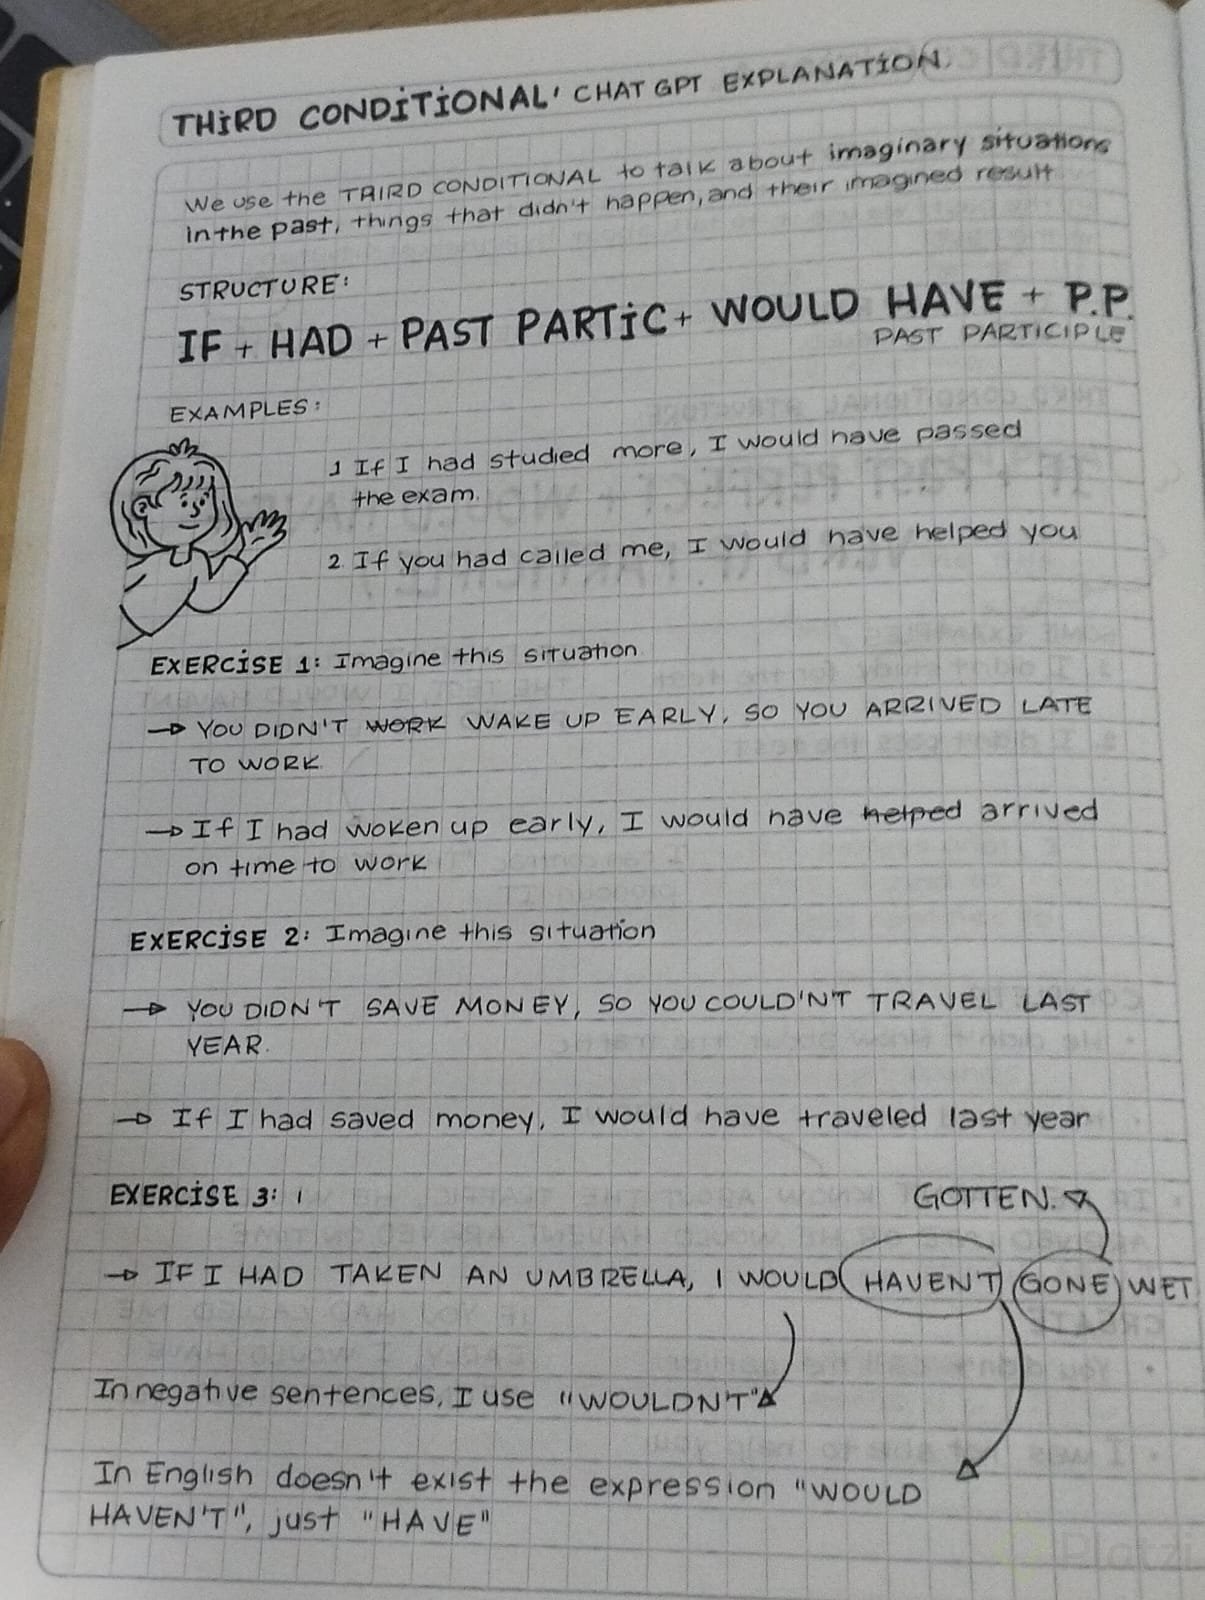 THIRD CONDITIONAL' CHAT GPT EXPLANATION.
We use the THIRD CONDITIONAL to talk about imaginary situations
in the past, things that didn't happen, and their imagined result
STRUCTURE:
IF + HAD + PAST PARTIC + WOULD HAVE + P.P.
PAST PARTICIPLE
EXAMPLES:
1 If I had studied more, I would have passed
the exam.
2. If you had called me, I would have helped you
EXERCISE 1: Imagine this situation
→ YOU DIDN'T WORK WAKE UP EARLY, SO YOU ARRIVED LATE
TO WORK.
→ If I had woken up early, I would have helped arrived
on time to work
EXERCISE 2: Imagine this situation
→ YOU DIDN'T SAVE MONEY, SO YOU COULD'N'T TRAVEL LAST
YEAR.
→ If I had saved money, I would have traveled last year
EXERCISE 3: I
GOTTEN.
→ IF I HAD TAKEN AN UMBRELLA, I WOULD HAVEN'T GONE WET
In negative sentences, I use "WOULDN'T"
In English doesn't exist the expression "WOULD
HAVEN'T", just "HAVE"
Platzi